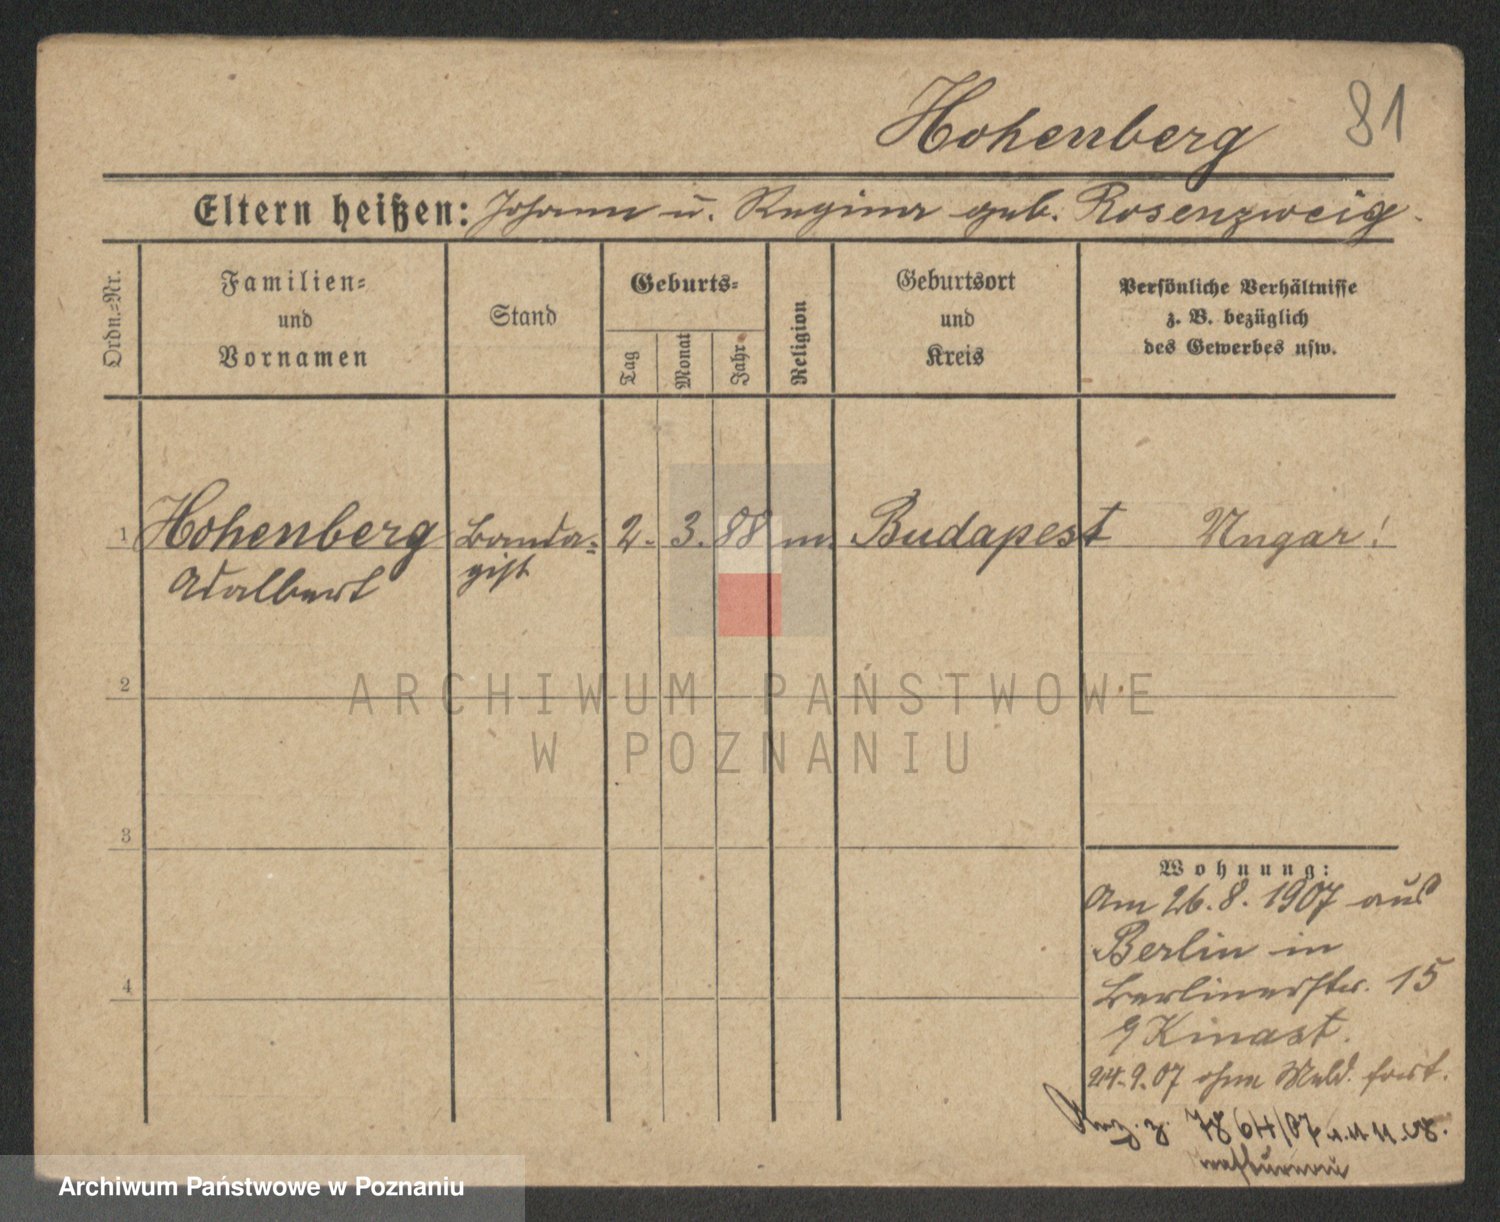 Hohenberg 81
Eltern heißen: Johann u. Regina geb. Rosenzweig.
Ordn.=Nr.
Familien=
und
Vornamen
Stand
Geburts=
Tag
Monat
Jahr
Religion
Geburtsort
und
Kreis
Persönliche Verhältnisse
z. B. bezüglich
des Gewerbes usw.
1 Hohenberg Banda= 2. 3. 88 m. Budapest Ungar!
Adalbert gist
2
ARCHIWUM PAŃSTWOWE
W POZNANIU
3
Wohnung:
Am 26.8.1907 aus
Berlin in
Berlinerstr. 15
Kinast.
24.9.07 ohne Meld. fort.
4
Archiwum Państwowe w Poznaniu